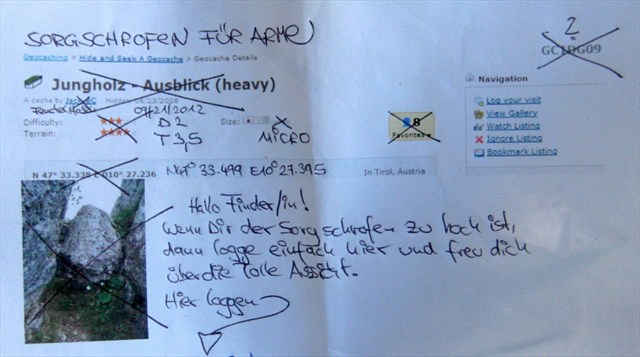 SORGSCHROFEN FÜR ARME
?
GC1DG09
Geocaching > Hide and Seek A Geocache > Geocache Details
Jungholz - Ausblick (heavy)
Navigation
A cache by Hidden
09/21/2012
Log your visit
View Gallery
Watch Listing
Ignore Listing
Bookmark Listing
Difficulty: D2 Size: X
8
Favorites
Terrain: T 3,5 MiCRO
N 47° 33.338 E 010° 27.236 N47° 33.499 E10° 27.395 In Tirol, Austria
Hallo Finder/in!
Wenn Dir der Sorgschrofen zu hoch ist,
dann logge einfach hier und freu dich
über die tolle
Hier loggen